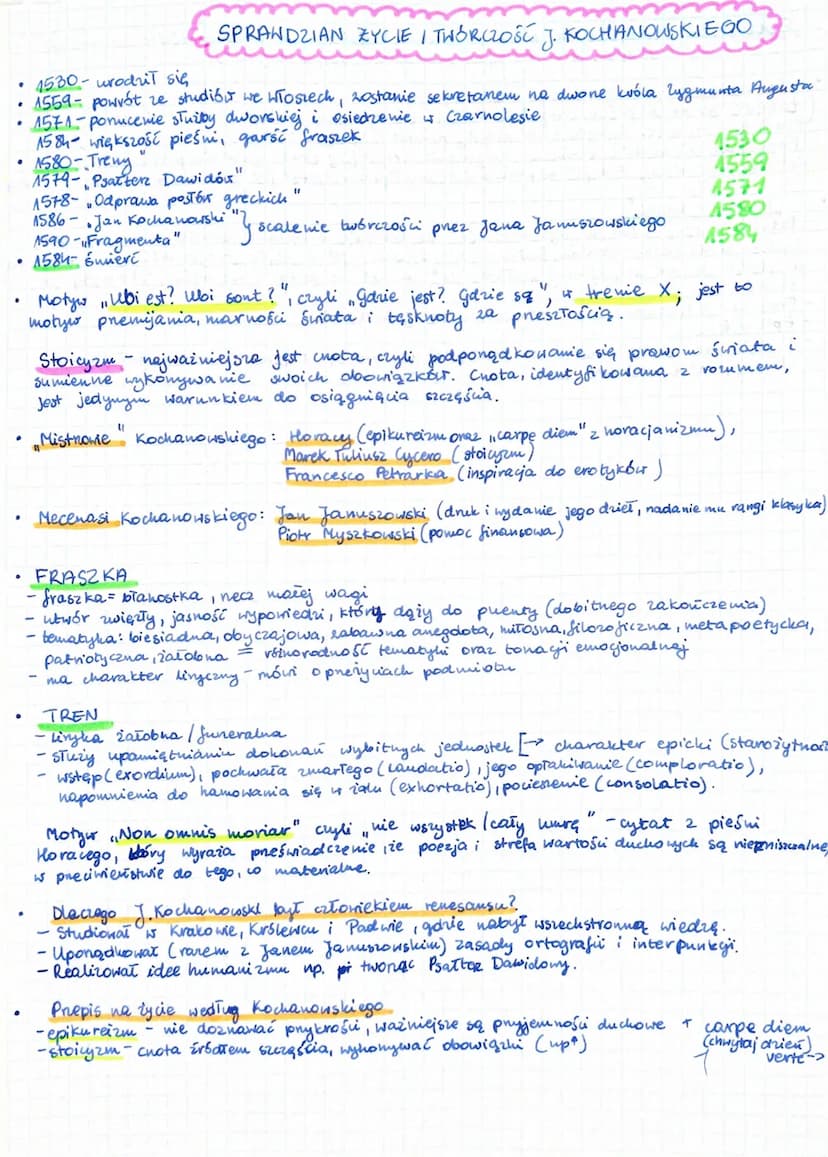 SPRAWDZIAN ŻYCIE I TWÓRCZOŚĆ J. KOCHANOWSKIEGO
• 1530 - urodził się
• 1559 - powrót ze studiów we Włoszech, zostanie sekretarzem na dworze króla Zygmunta Augusta
• 1571 - porzucenie służby dworskiej i osiedzenie w Czarnolesie
1584 - większość pieśni, garść fraszek
• 1580 - „Treny"
1579 - „Psałterz Dawidów"
1578 - „Odprawa posłów greckich"
1586 - „Jan Kochanowski" } scalenie twórczości przez Jana Januszowskiego
1590 - „Fragmenta"
• 1584 - śmierć
1530
1559
1571
1580
1584
• Motyw „Ubi est? Ubi sunt?", czyli „gdzie jest? gdzie są", w trenie X; jest to
motyw przemijania, marności świata i tęsknoty za przeszłością.
Stoicyzm - najważniejsza jest cnota, czyli podporządkowanie się prawom świata i
sumienne wykonywanie swoich obowiązków. Cnota, identyfikowana z rozumem,
jest jedynym warunkiem do osiągnięcia szczęścia.
• „Mistrzowie" Kochanowskiego: Horacy (epikureizm oraz „carpe diem" z horacjanizmu),
Marek Tuliusz Cycero (stoicyzm)
Francesco Petrarka (inspiracja do erotyków)
• Mecenasi Kochanowskiego: Jan Januszowski (druk i wydanie jego dzieł, nadanie mu rangi klasyka)
Piotr Myszkowski (pomoc finansowa)
• FRASZKA
- fraszka = błahostka, rzecz małej wagi
- utwór zwięzły, jasność wypowiedzi, który dąży do puenty (dobitnego zakończenia)
- tematyka: biesiadna, obyczajowa, zabawna anegdota, miłosna, filozoficzna, metapoetycka,
patriotyczna, żałobna = różnorodność tematyki oraz tonacji emocjonalnej
- ma charakter liryczny - mówi o przeżyciach podmiotu
• TREN
- liryka żałobna / funeralna
- służy upamiętnianiu dokonań wybitnych jednostek [→ charakter epicki (starożytność
- wstęp (exordium), pochwała zmarłego (laudatio), jego opłakiwanie (comploratio),
napomnienia do hamowania się w żalu (exhortatio), pocieszenie (consolatio).
Motyw „Non omnis moriar" czyli „nie wszystek / cały umrę" - cytat z pieśni
Horacego, który wyraża przeświadczenie, że poezja i strefa wartości duchowych są niezniszczalne,
w przeciwieństwie do tego, co materialne.
• Dlaczego J. Kochanowski był człowiekiem renesansu?
- Studiował w Krakowie, Królewcu i Padwie, gdzie nabył wszechstronną wiedzę.
- Uporządkował (razem z Janem Januszowskim) zasady ortografii i interpunkcji.
- Realizował idee humanizmu np. tworząc Psałterz Dawidowy.
• Przepis na życie według Kochanowskiego
- epikureizm - nie doznawać przykrości, ważniejsze są przyjemności duchowe + carpe diem
- stoicyzm - cnota źródłem szczęścia, wykonywać obowiązki (up↑) (chwytaj dzień)
verte →